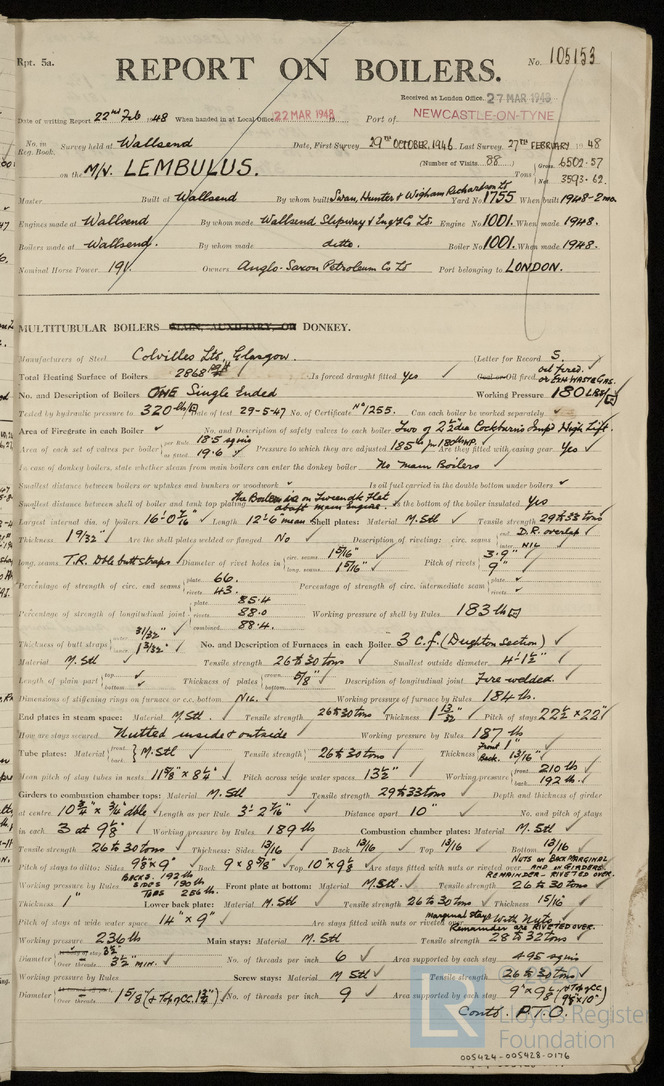 Rpt. 5a.
No. 105153
REPORT ON BOILERS.
Received at London Office. 27 MAR 1948
Date of writing Report 22nd Feb 1948 When handed in at Local Office 22 MAR 1948 Port of NEWCASTLE-ON-TYNE
No. in Reg. Book. Survey held at Wallsend Date, First Survey 29TH OCTOBER, 1946 Last Survey 27TH FEBRUARY 1948
on the M/V. LEMBULUS. (Number of Visits 88) Tons Gross 6502.57 Net 3593.62
Master Built at Wallsend By whom built Swan, Hunter & Wigham Richardson Ltd Yard No. 1755 When built 1948-2mo.
Engines made at Wallsend By whom made Wallsend Slipway & Eng. Co. Ltd. Engine No. 1001. When made 1948.
Boilers made at Wallsend. By whom made ditto. Boiler No. 1001. When made 1948.
Nominal Horse Power 191. Owners Anglo-Saxon Petroleum Co Ltd Port belonging to LONDON.
MULTITUBULAR BOILERS MAIN, AUXILIARY, OR DONKEY.
Manufacturers of Steel Colvilles Ltd, Glasgow. (Letter for Record S.
Total Heating Surface of Boilers 2868 sq ft Is forced draught fitted Yes Coal or Oil fired oil fired. or EXH. WASTE GAS.
No. and Description of Boilers ONE Single Ended Working Pressure 180 LBS/□"
Tested by hydraulic pressure to 320 lbs/□" Date of test 29-5-47 No. of Certificate No 1255. Can each boiler be worked separately ✓
Area of Firegrate in each Boiler ✓ No. and Description of safety valves to each boiler Two of 2½" dia Cockburn's Impd High Lift.
Area of each set of valves per boiler per Rule 18.5 sq ins as fitted 19.6 Pressure to which they are adjusted 185 lb for 180 lb W.P. Are they fitted with easing gear Yes
In case of donkey boilers, state whether steam from main boilers can enter the donkey boiler No Main Boilers
Smallest distance between boilers or uptakes and bunkers or woodwork ✓ Is oil fuel carried in the double bottom under boilers ✓
Smallest distance between shell of boiler and tank top plating The Boiler is on Tweendk Flat abaft main engine. Is the bottom of the boiler insulated Yes
Largest internal dia. of boilers 16'-0 7/16" Length 12'-6" mean Shell plates: Material M.Stl Tensile strength 29 to 33 tons
Thickness 1 9/32" Are the shell plates welded or flanged No Description of riveting: circ. seams end D.R. overlap inter. NIL
long. seams T.R. Dble butt straps Diameter of rivet holes in circ. seams 1 5/16" long. seams 1 5/16" Pitch of rivets 3.9" 9"
Percentage of strength of circ. end seams plate 66. rivets 43. Percentage of strength of circ. intermediate seam plate ✓ rivets ✓
Percentage of strength of longitudinal joint plate 85.4 rivets 88.0 combined 88.4. Working pressure of shell by Rules 183 lb/□"
Thickness of butt straps outer 31/32" inner 1 3/32" No. and Description of Furnaces in each Boiler 3 C.f. (Deighton Section)
Material M.Stl Tensile strength 26 to 30 tons Smallest outside diameter 4'-1½"
Length of plain part top ✓ bottom ✓ Thickness of plates crown bottom 5/8" Description of longitudinal joint Fire welded.
Dimensions of stiffening rings on furnace or c.c. bottom Nil. Working pressure of furnace by Rules 184 lb.
End plates in steam space: Material M.Stl Tensile strength 26 to 30 tons Thickness 1 13/32" Pitch of stays 22½ × 22"
How are stays secured Nutted inside & outside Working pressure by Rules 187 lb
Tube plates: Material front back M.Stl Tensile strength 26 to 30 tons Thickness Front 1" Back 13/16"
Mean pitch of stay tubes in nests 11 5/8" × 8¼" Pitch across wide water spaces 13½" Working pressure front 210 lb back 192 lb.
Girders to combustion chamber tops: Material M.Stl Tensile strength 29 to 33 tons Depth and thickness of girder
at centre 10¾" × ¾" dble Length as per Rule 3'-2 7/16" Distance apart 10" No. and pitch of stays
in each 3 at 9⅛" Working pressure by Rules 189 lb Combustion chamber plates: Material M.Stl
Tensile strength 26 to 30 tons Thickness: Sides 13/16 Back 13/16 Top 13/16 Bottom 13/16
Pitch of stays to ditto: Sides 9⅛" × 9" Back 9 × 8 5/8" Top 10" × 9⅛ Are stays fitted with nuts or riveted over NUTS IN BACK MARGINAL AND IN GIRDERS REMAINDER - RIVETED OVER.
Working pressure by Rules BACKS. 192 lb SIDES 190 lb TOPS 256 lb. Front plate at bottom: Material M.Stl. Tensile strength 26 to 30 tons
Thickness 1" Lower back plate: Material M.Stl Tensile strength 26 to 30 tons Thickness 15/16"
Pitch of stays at wide water space 14" × 9" Are stays fitted with nuts or riveted over marginal stays With Nuts Remainder are RIVETED OVER.
Working pressure 236 lb Main stays: Material M.Stl Tensile strength 28 to 32 tons
Diameter At body of stay 3½" Over threads 3½" MIN. No. of threads per inch 6 Area supported by each stay 495 sq ins
Working pressure by Rules Screw stays: Material M Stl Tensile strength 26 to 30 tons
Diameter At turned off part Over threads 1 5/8" (& Top of CC. 1¾") No. of threads per inch 9 Area supported by each stay 9" × 9⅛" (& Top of CC. 9⅛ × 10")
Contd. P.T.O.
© 2020
LR
Lloyd's Register
Foundation
005424-005428-0176